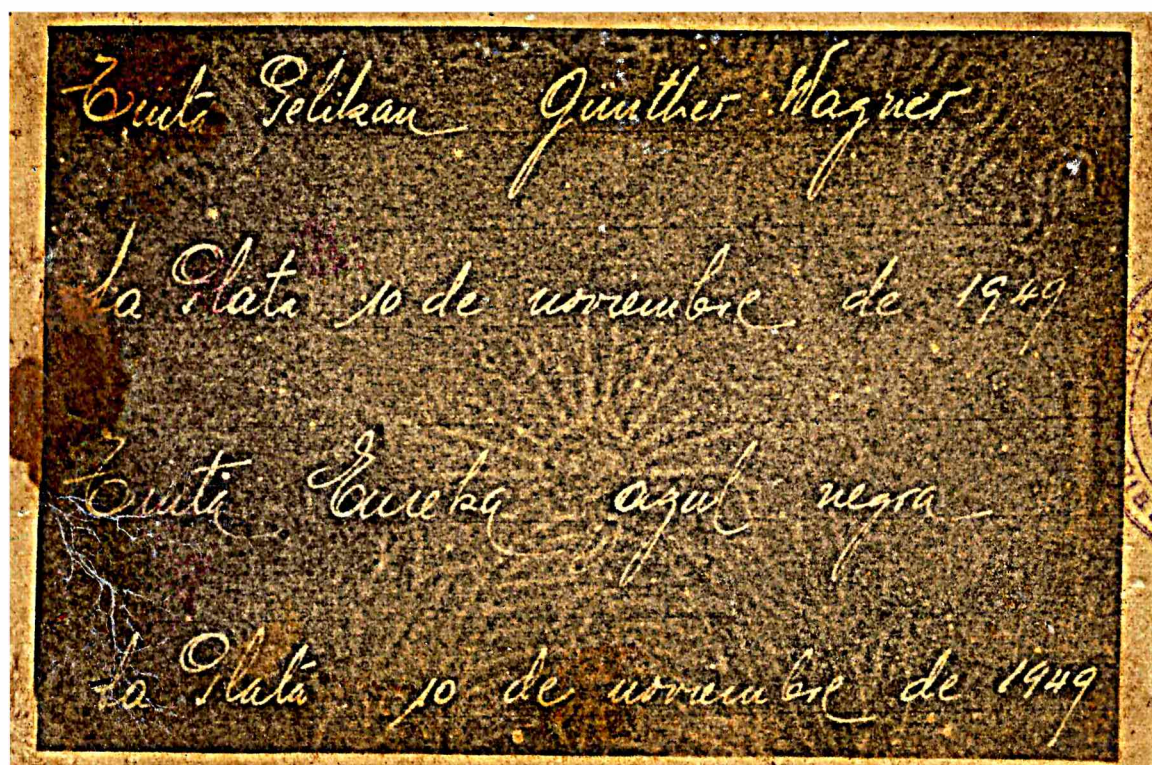 Tinta Pelikan Gunther Wagner
La Plata 10 de noviembre de 1949
Tinta Eureka azul negra
La Plata 10 de noviembre de 1949